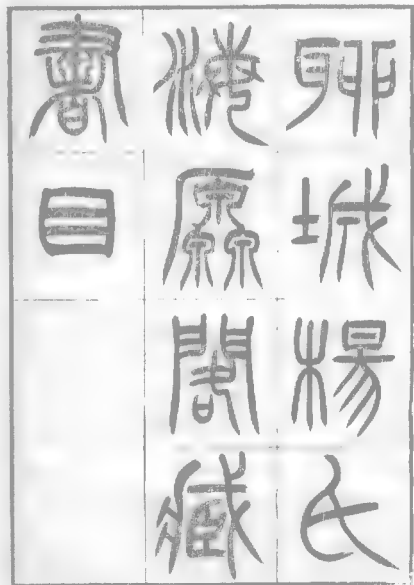 聊城楊氏
海厵閣藏
書目